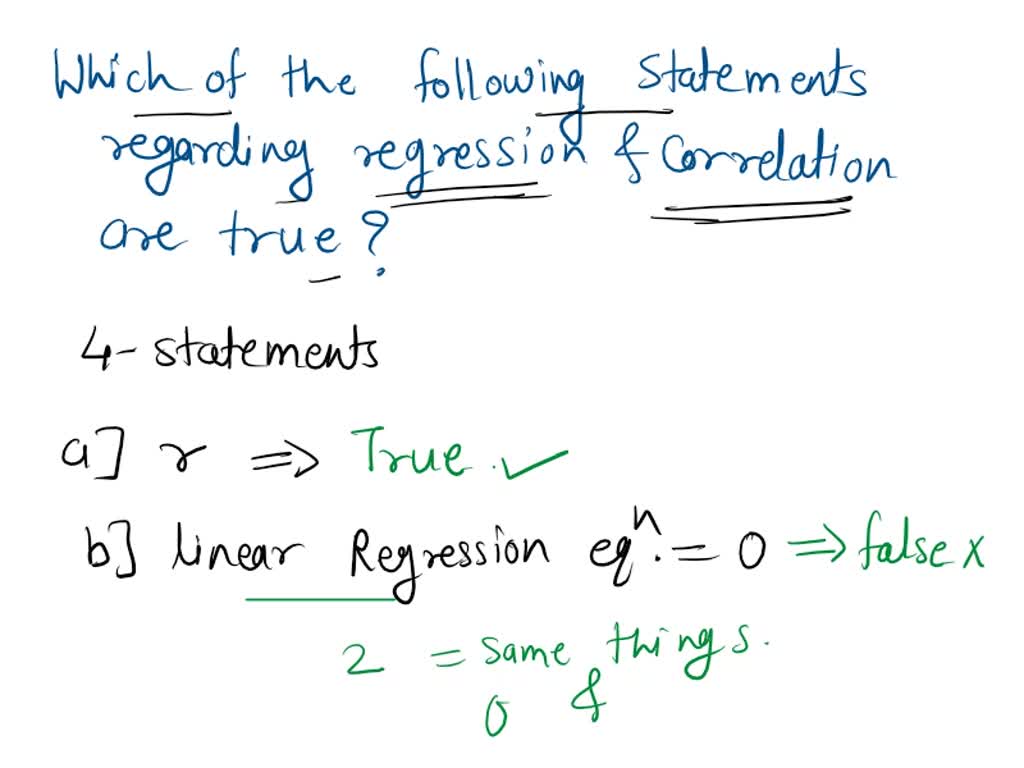 Which of the following statements
regarding regression & Correlation
are true?
4- statements
a] r ⇒ True. ✓
b] linear Regression eqⁿ. = 0 ⇒ false x
2 = same things.
0 &